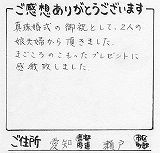 ご感想ありがとうございます
真珠婚式の御祝として、2人の
娘夫婦から頂きました。
まごころのこもったプレゼントに
感激致しました。
ご住所 愛知 都道府県 瀬戸 市区郡